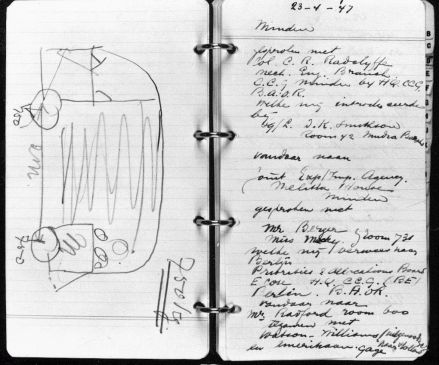 750
750
750/15
23-4-'47
Minden
gesproken met
Col. C. R. Radclyffe
Mech. Eng. Branch
C.C.G. Minden by HQ. CCG,
B.A.O.R.
welke mij introduceerde
bij
J. K. Smithson
Room 42
vandaar naar
Joint Exp/Imp. Agency.
Melitta House
Minden
gesproken met
Mr Berger room 731
Miss
welke mij verwees naar
Berlijn
Priorities & Allocations Board
Econ H.Q. C.C.G. (BE)
Berlin. B.A.O.R.
vandaar naar
Mr Radford room 600
tezamen met
Watson-Williams
en amerikaan Gage